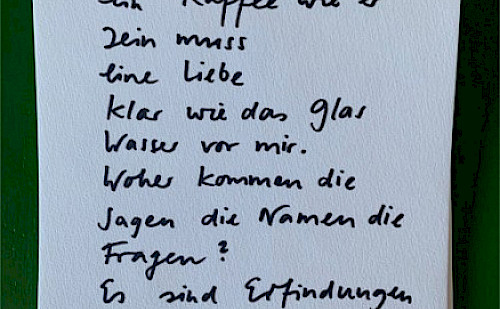 ein Kaffee wie er
sein muss
eine Liebe
klar wie das Glas
Wasser vor mir.
Woher kommen die
Sagen die Namen die
Fragen?
Es sind Erfindungen